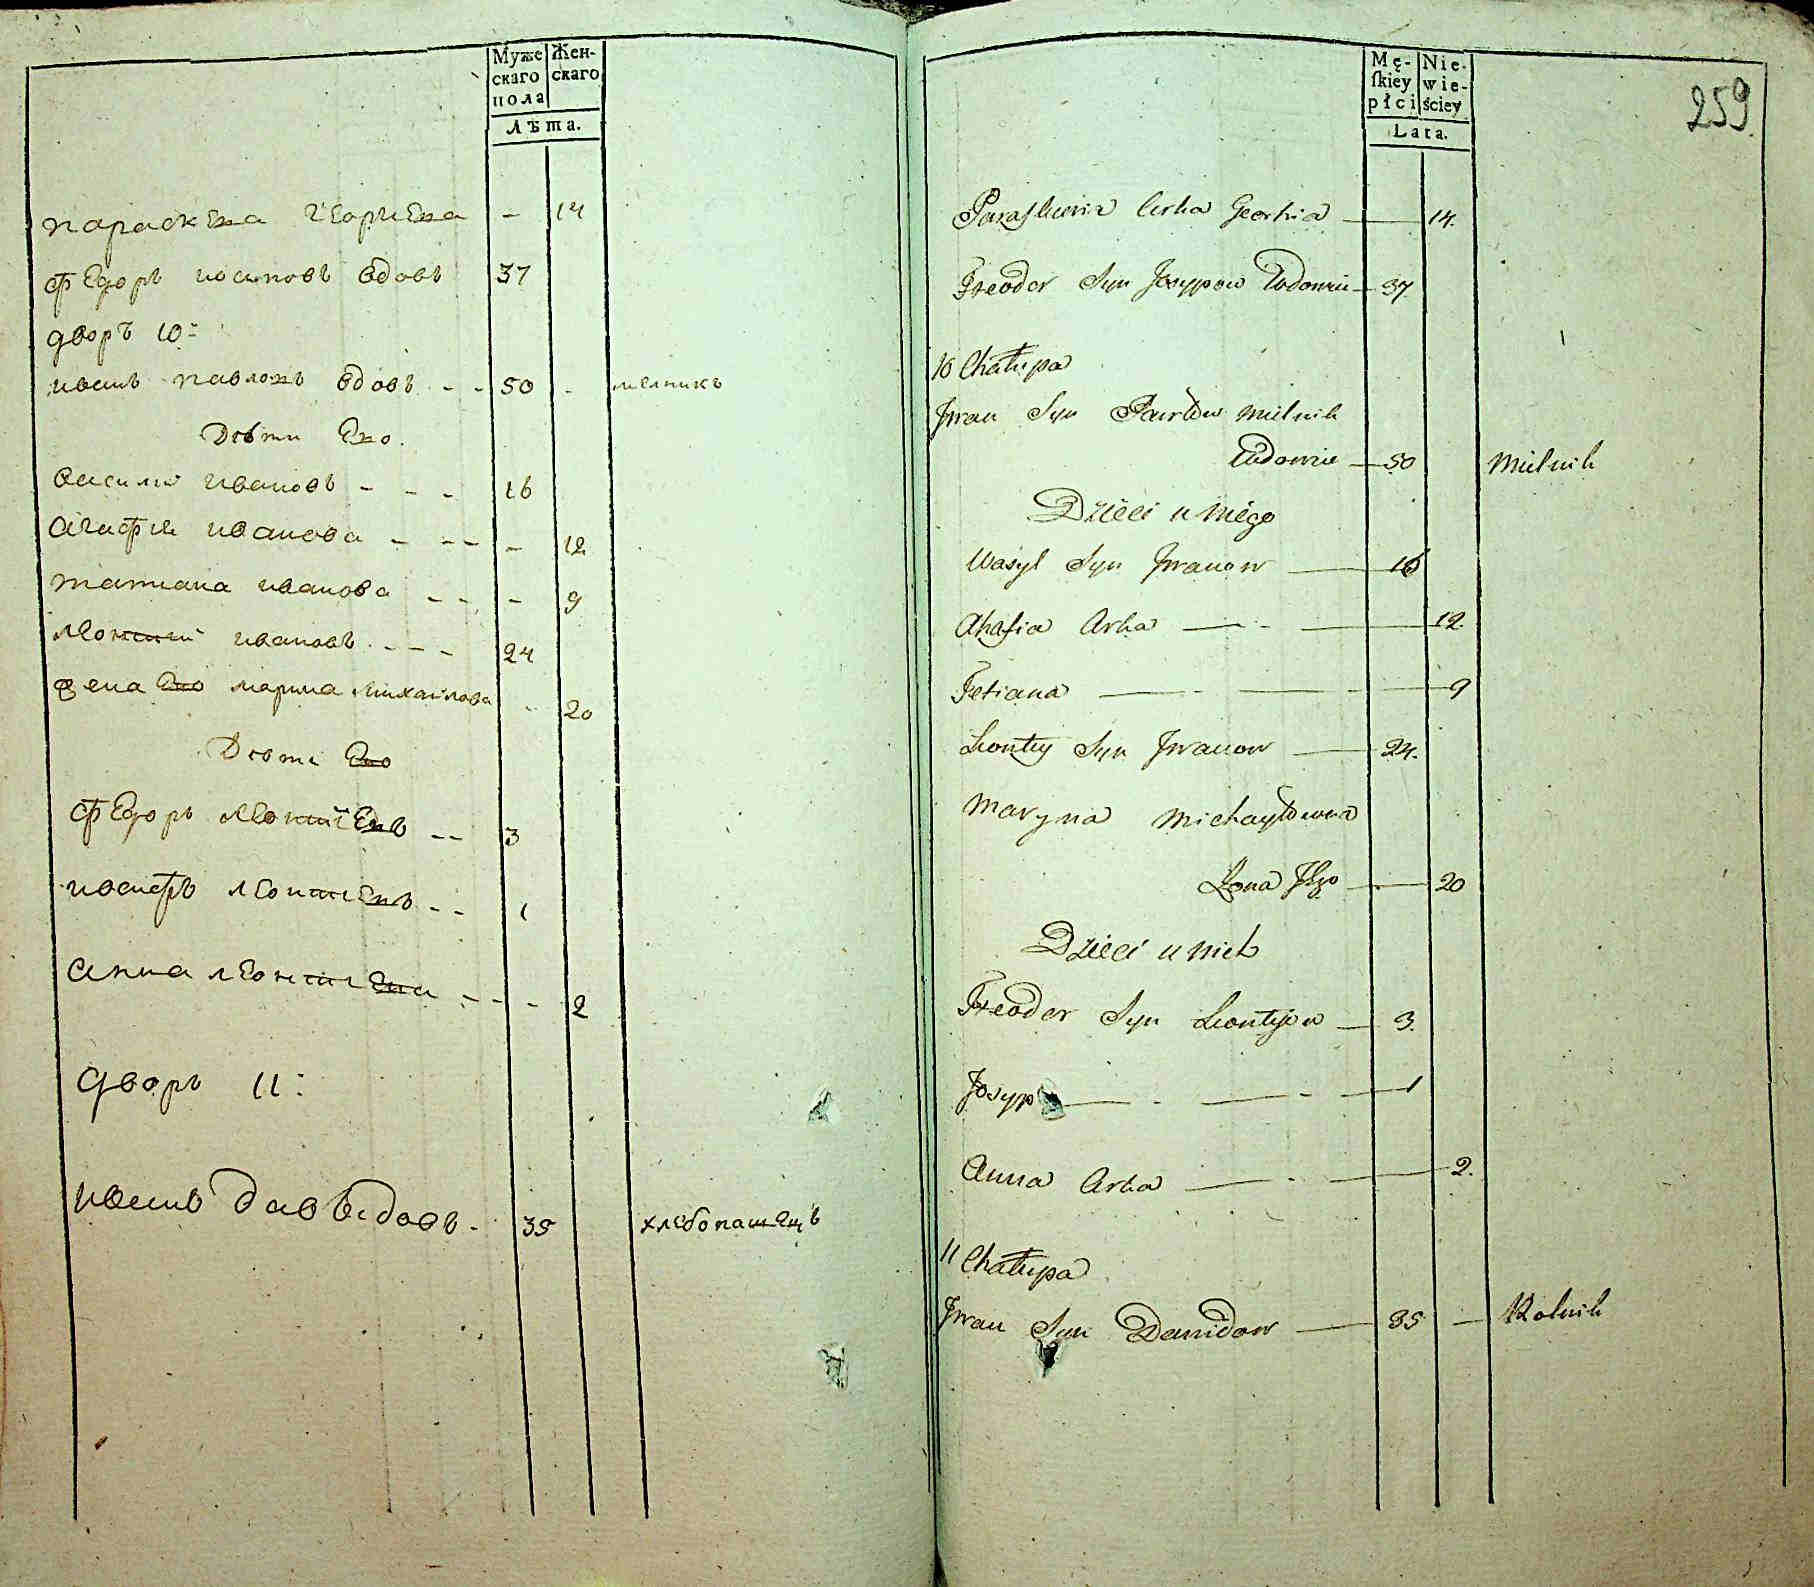 Муже Жен-
скаго скаго
пола
Лѣта.
параскева георгиева - 14
федоръ иосиповъ вдовъ 37
дворъ 10:
иванъ павловъ вдовъ - - 50 - мелникъ
Дѣти Его.
василий ивановъ - - - 16
агафия иванова - - - - 12
татиана иванова - - - 9
леонтий ивановъ - - - 24
жена Его марина михайлова - 20
Дѣти Его
федоръ леонтиевъ - - 3
иосифъ леонтиевъ - - 1
анна леонтиева - - - 2
дворъ 11:
иванъ давыдовъ - 35 хлебопашецъ
259
Mę- Nie-
ſkiey wie-
płci ściey
Lata.
Paraſkewia Corka Georhia — 14.
Fteodor Syn Josypow Wdowiec — 37
10 Chałupa
Jwan Syn Pawłow Mielnik
Wdowiec — 50 Mielnik
Dzieci u niego
Wasyl Syn Jwanow — 16
Ahafia Corka — 12
Tetiana — 9
Leontey Syn Jwanow — 24.
Maryna Michayłowna
Żona Jego — 20
Dzieci u nich
Fteodor Syn Leontejow — 3.
Josyp — 1
Anna Corka — 2.
11 Chałupa
Jwan Syn Dawidow — 35 — Rolnik